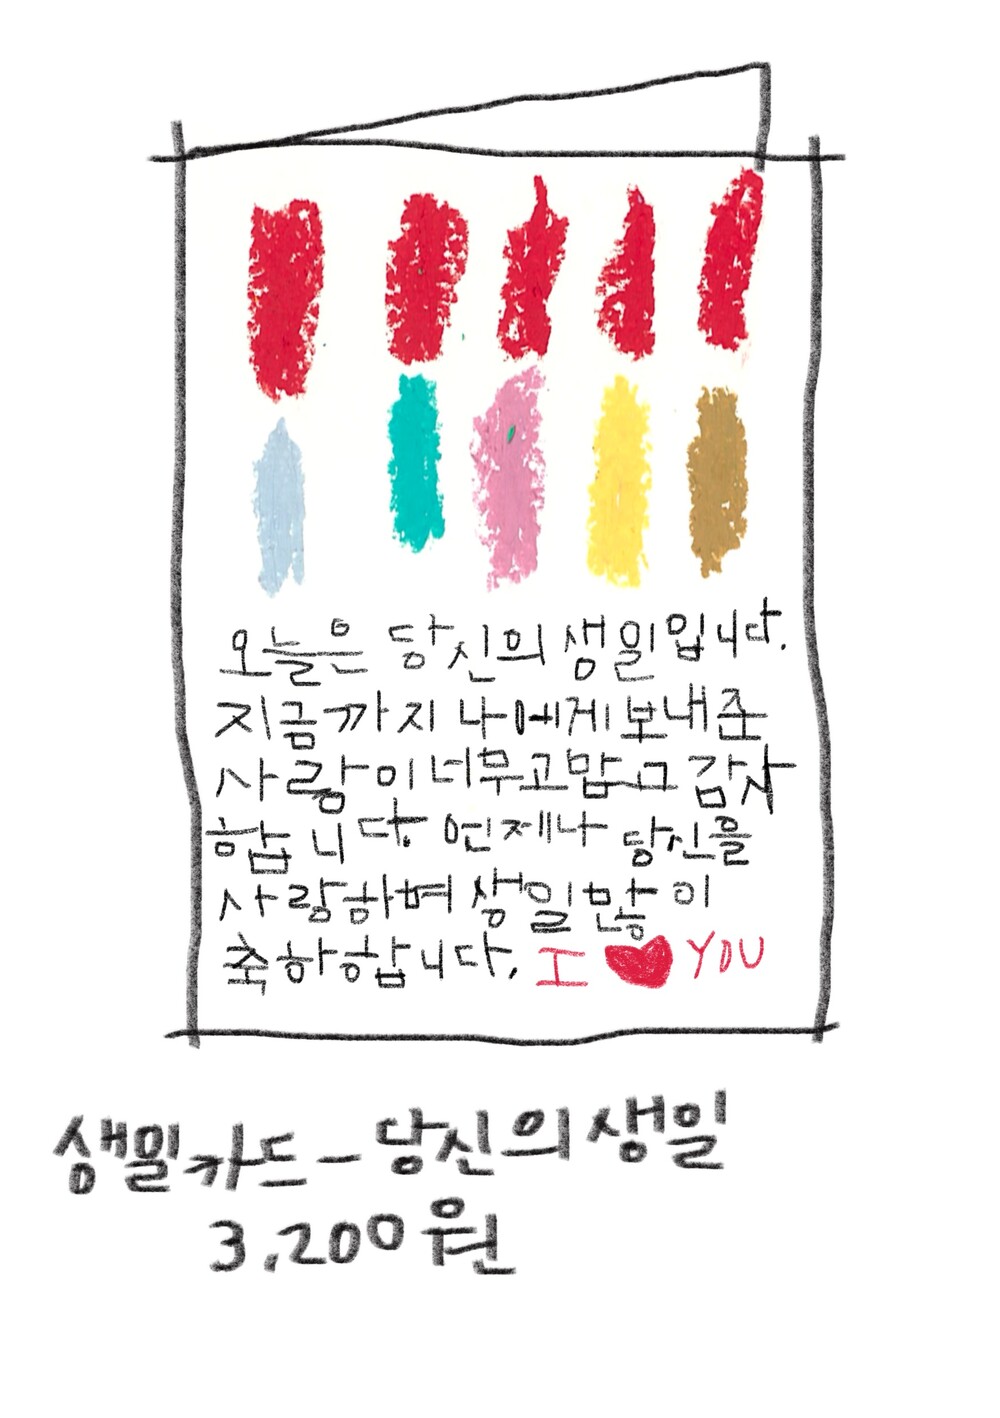 오늘은 당신의 생일입니다.
지금까지 나에게 보내준
사랑이 너무 고맙고 감사
합니다. 언제나 당신을
사랑하며 생일 많이
축하합니다. I ♥ YOU
생일카드 - 당신의 생일
3,200원